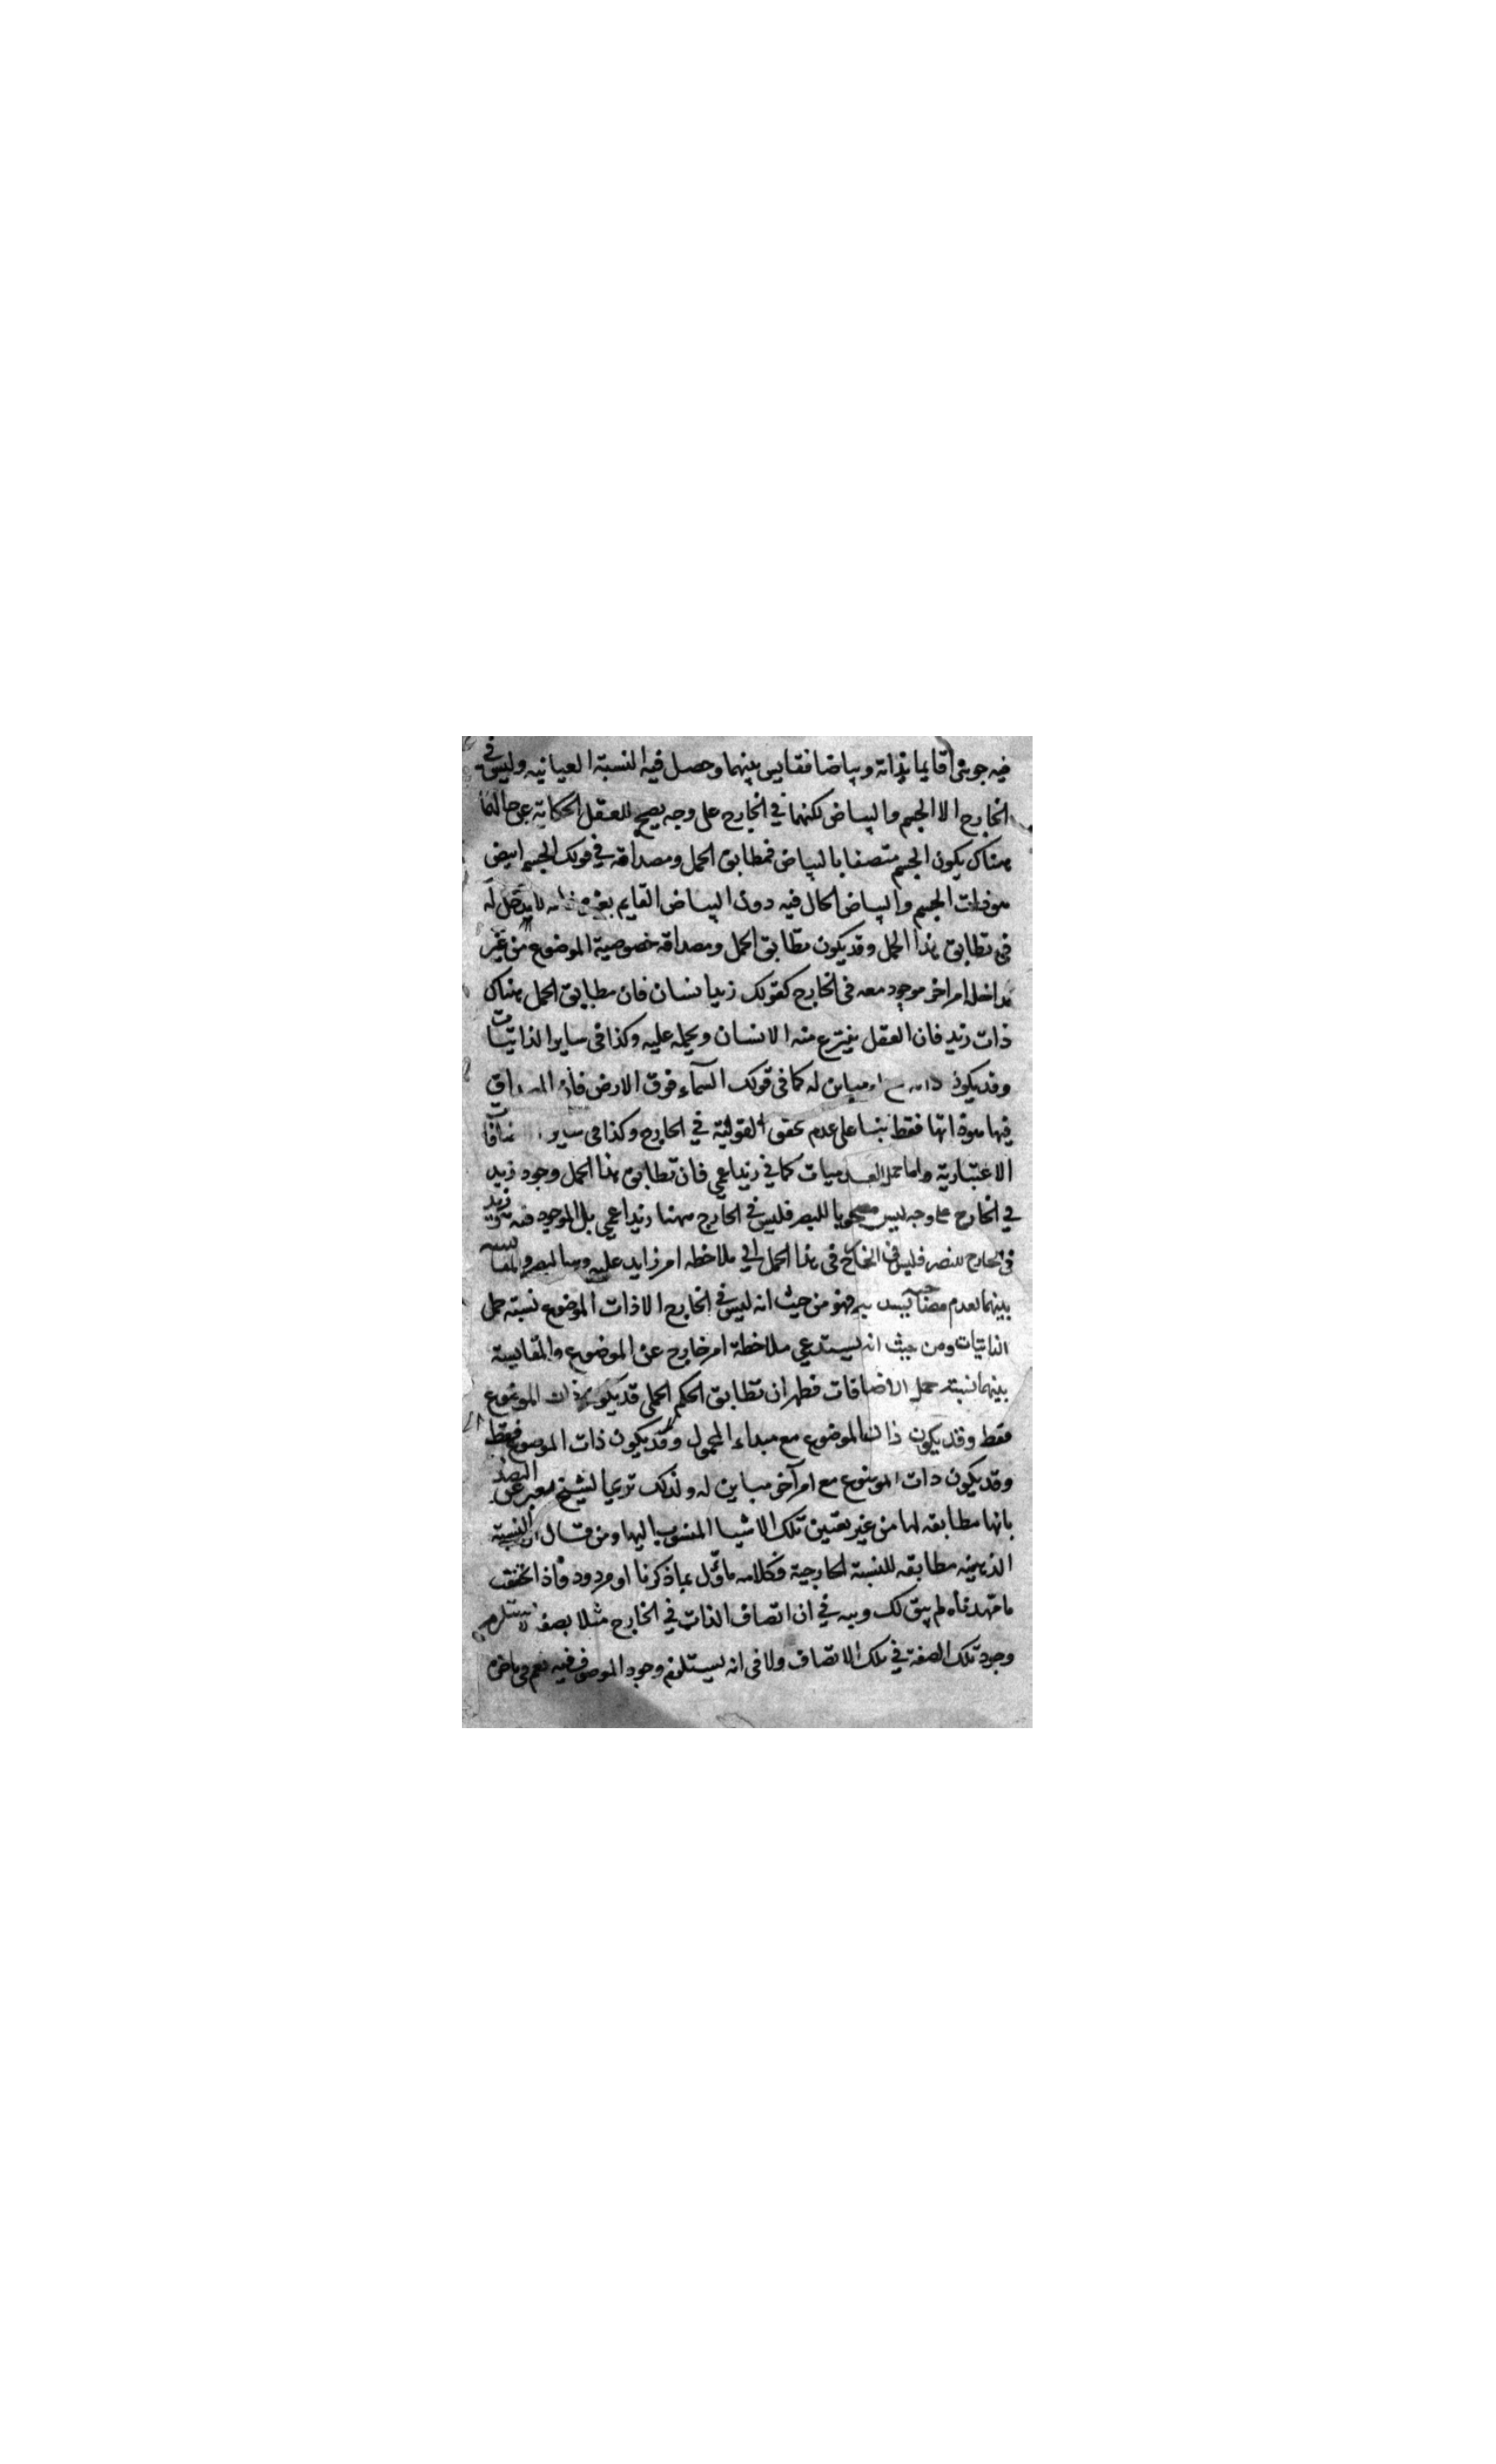 فيه جوهرا قايما بذاته وبياضا فقايس بينهما وحصل فيه النسبة العيانيه وليس في
الخارج الا الجسم والبياض لكنهما في الخارج على وجه يصح للعقل الحكاية عن حالهما
هناك يكون الجسم متصفا بالبياض فمطابق الحمل ومصداقه في قولك الجسم ابيض
هو ذات الجسم والبياض الحال فيه دون البياض القايم بغيره لا يدخل له
في تطابق هذا الحمل وقد يكون مطابق الحمل ومصداقه خصوصية الموضوع من غير
مداخلة امر اخر موجود معه في الخارج كقولك زيد انسان فان مطابق الحمل هناك
ذات زيد فان العقل ينتزع منه الانسان ويحمله عليه وكذا في ساير الذاتيات
وقد يكون مباين له كما في قولك السماء فوق الارض فان
فيها هو ذاتها فقط بنا على عدم تحقق الفوقية في الخارج وكذا في ساير
الاعتبارية واما حمل العدميات كما في زيد اعمى فان تطابق هذا الحمل وجود زيد
في الخارج على وجه ليس مصحوبا للبصر فليس في الخارج ههنا زيد اعمى بل الموجود فيه زيد
في هذا الحمل الى ملاحظه امر زايد عليه
بينهما بعدم فهو من حيث انه ليس في الخارج الا ذات الموضوع نسبته حمل
الذاتيات ومن حيث انه يستدعي ملاحظة امر خارج عن الموضوع والمقايسة
بينهما نسبته حمل الاضافات فظهر ان تطابق الحكم الحملي قد يكون ذات الموضوع
فقط وقد يكون ذات الموضوع مع مبداء المحمول وقد يكون ذات الموضوع فقط
وقد يكون ذات الموضوع مع امر آخر مباين له ولذلك ترى الشيخ يعبر عن
بانها مطابقه لها من غير تعيين تلك الاشيا المنسوب اليها ومن قال ان النسبة
الذهنيه مطابقه للنسبة الخارجية فكلامه ماؤل بما ذكرنا او مردود فاذا تحققت
ما مهدناه لم يبق لك في ان اتصاف الذات في الخارج مثلا بصفه لا يستلزم
وجود تلك الصفة في تلك الاتصاف ولا في انه يستلزم وجود الموصوف فيه نعم